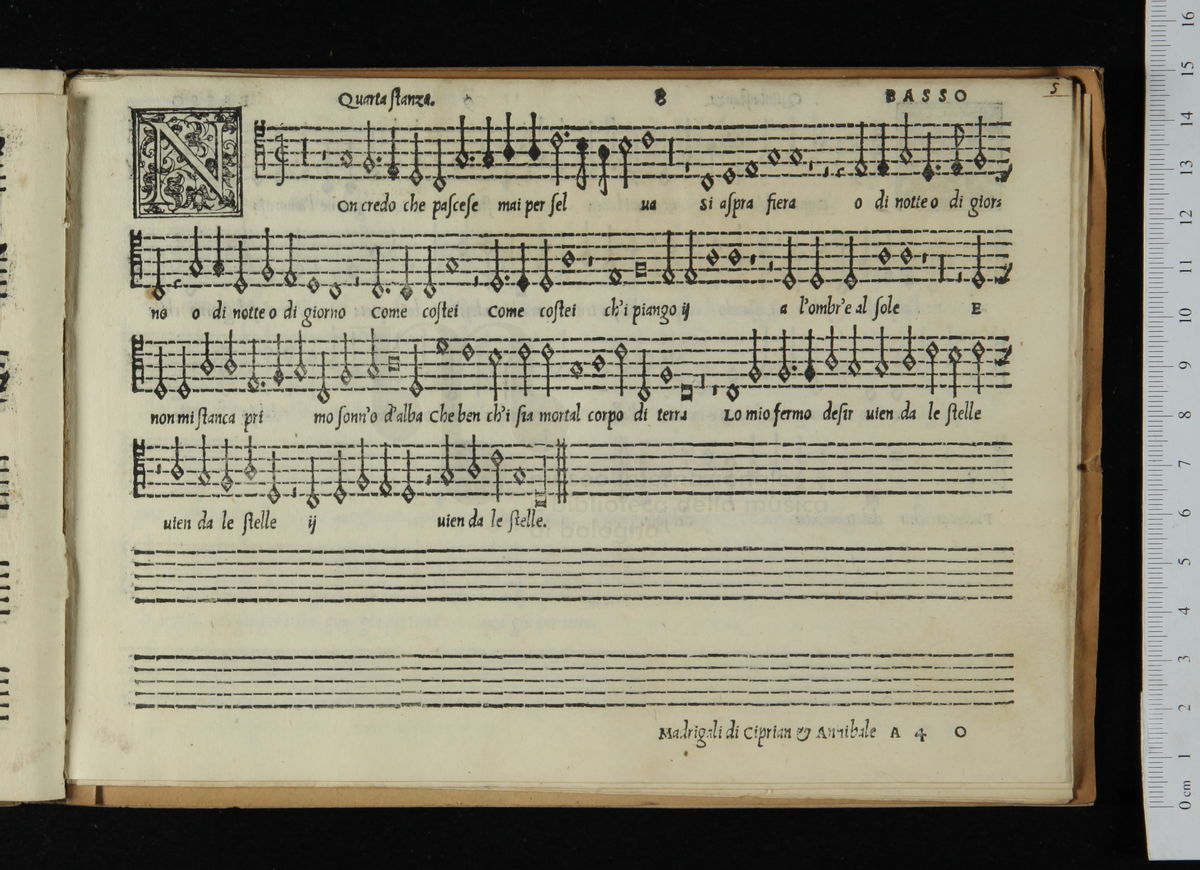 Quarta stanza. 8 BASSO 5
N
On credo che pascese mai per sel ua Si aspra fiera o di notte o di giors
no o di notte o di giorno Come costei Come costei ch'i piango ij a l'ombr'e al sole E
non mi stanca pri mo sonn'o d'alba Che ben ch'i sia mortal corpo di terra Lo mio fermo desir uien da le stelle
uien da le stelle ij uien da le stelle.
biblioteca della musica
di bologna
Madrigali di Ciprian & Annibale A 4 O
16
15
14
13
12
11
10
9
8
7
6
5
4
3
2
1
0 cm